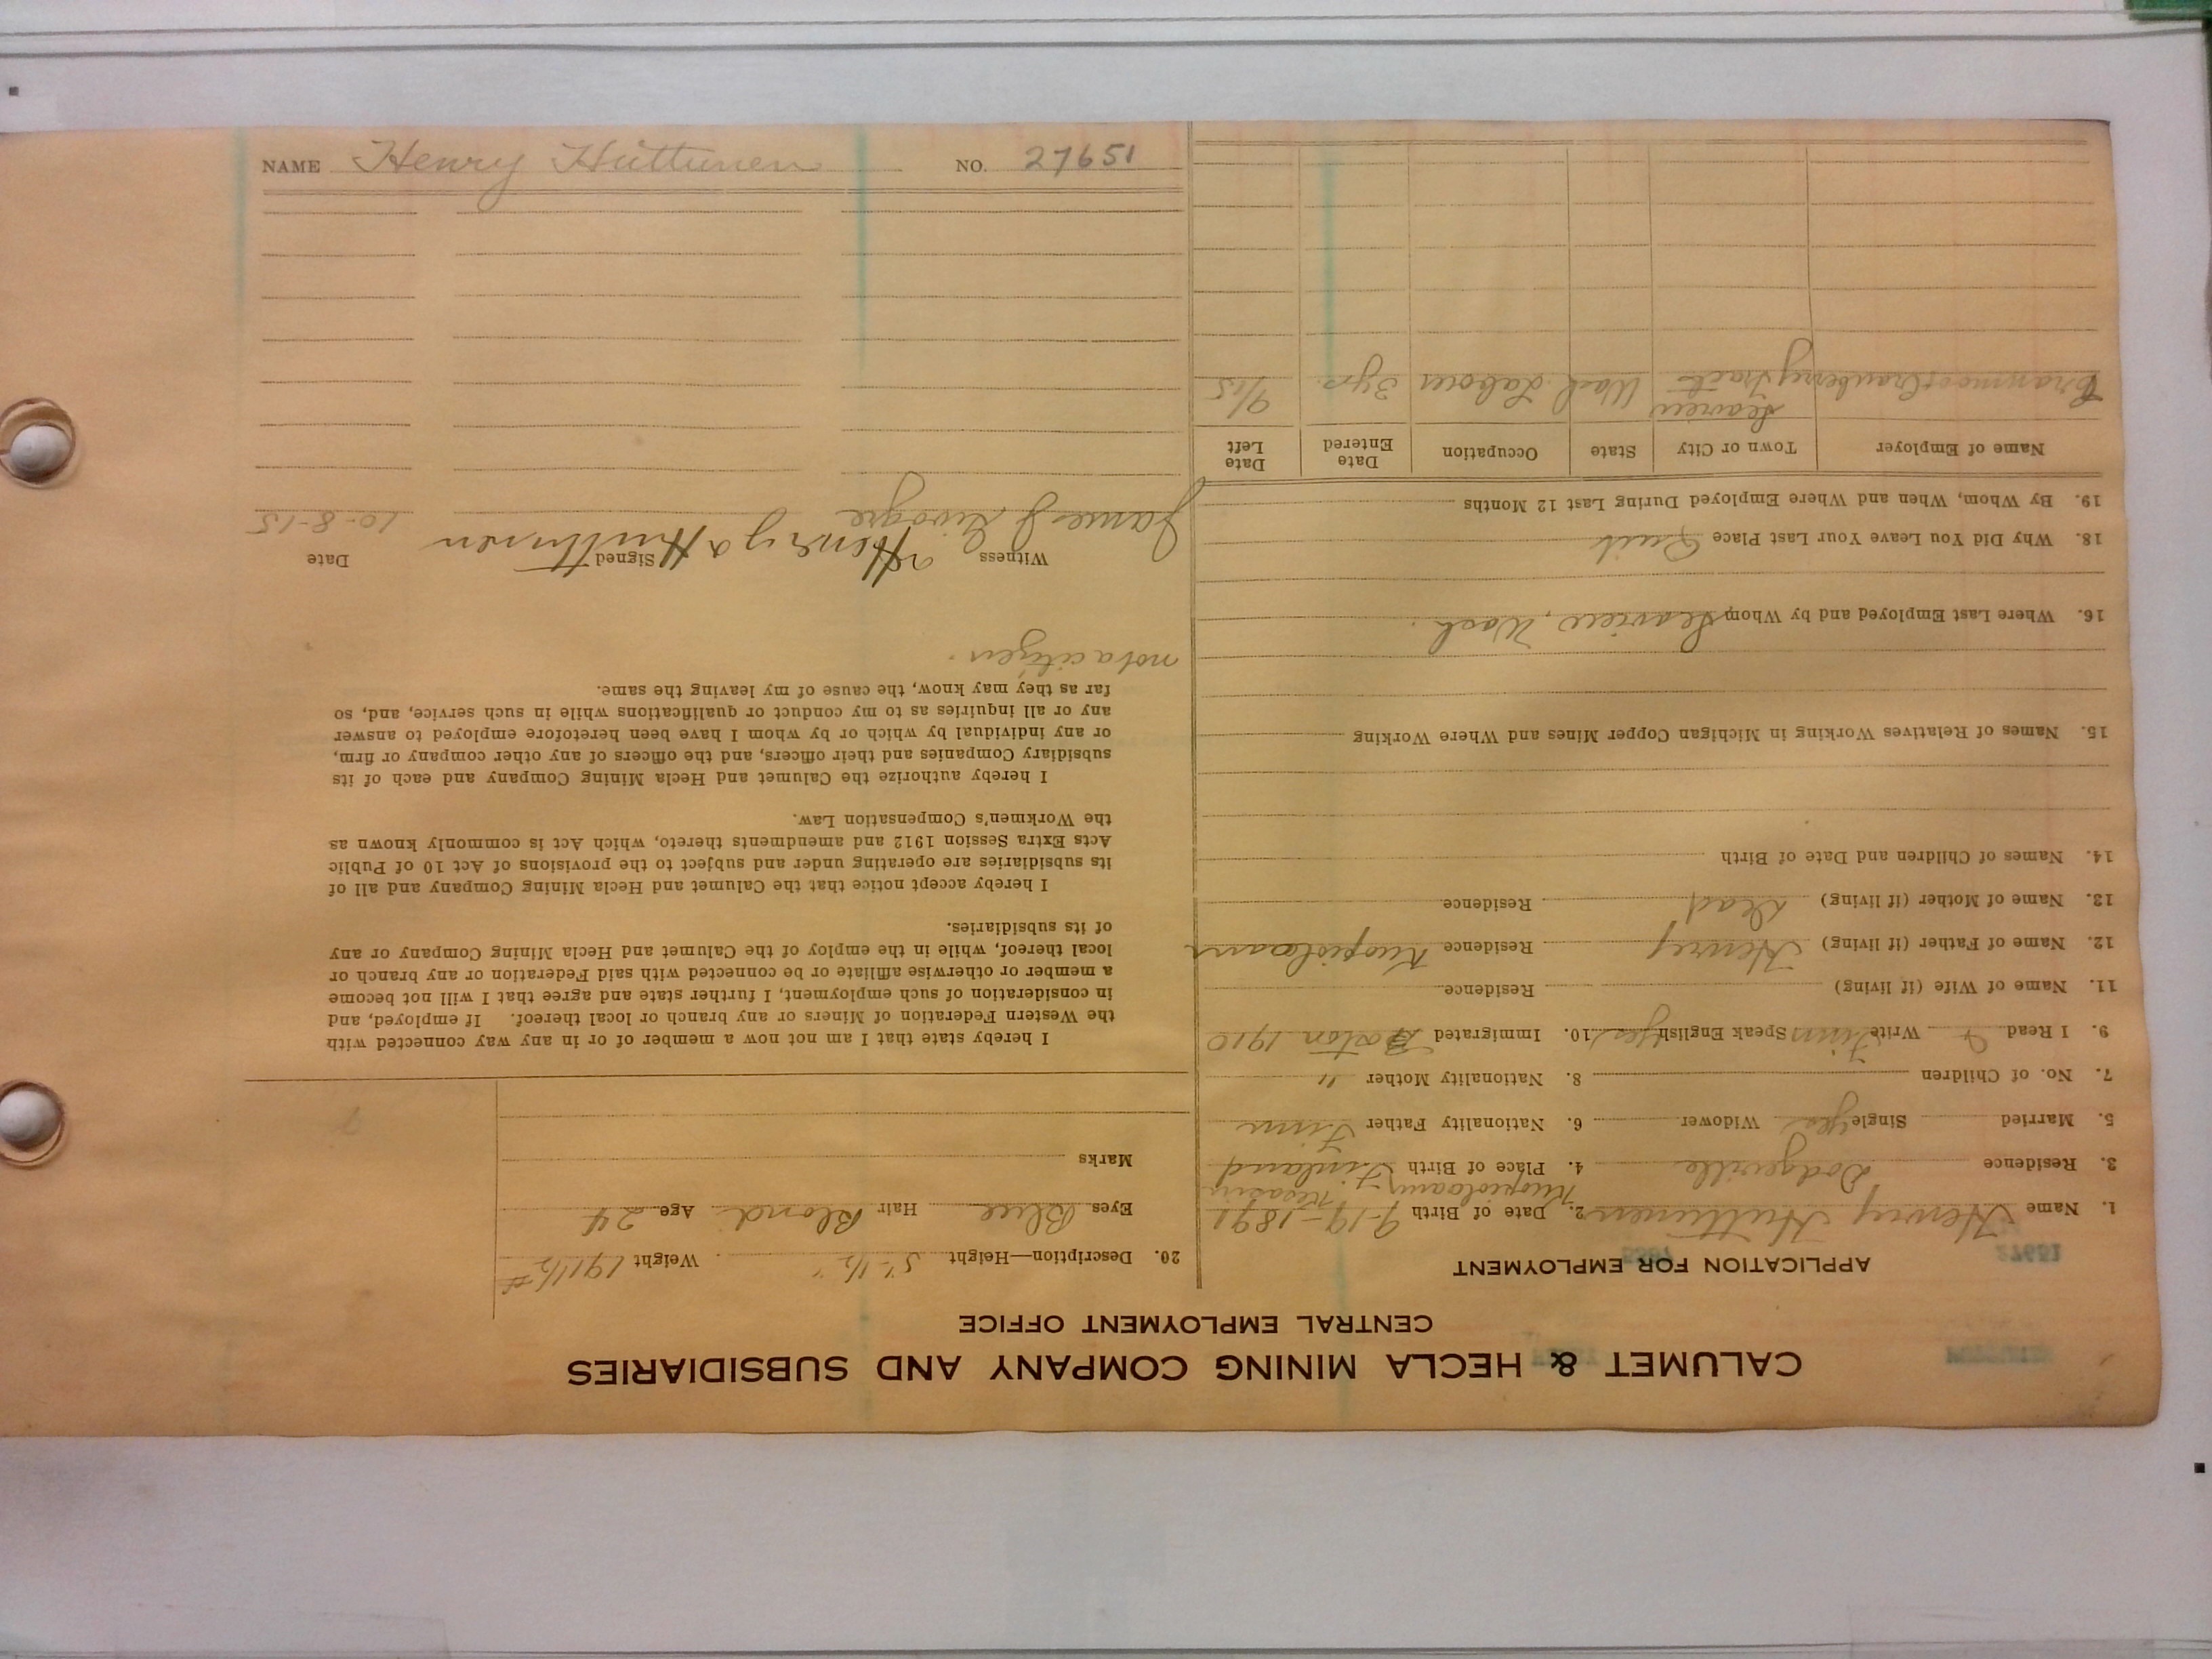 CALUMET & HECLA MINING COMPANY AND SUBSIDIARIES
CENTRAL EMPLOYMENT OFFICE
27651
APPLICATION FOR EMPLOYMENT
1. Name Henry Huttunen 2. Date of Birth 9-19-1891
3. Residence Dodgeville 4. Place of Birth Finland
5. Married Single Yes Widower 6. Nationality Father Finn
7. No. of Children 8. Nationality Mother "
9. I Read Write Finn Speak English Yes 10. Immigrated Boston 1910
11. Name of Wife (if living) Residence
12. Name of Father (if living) Henry Residence Kuopiolaani
13. Name of Mother (if living) Dead Residence
14. Names of Children and Date of Birth
15. Names of Relatives Working in Michigan Copper Mines and Where Working
16. Where Last Employed and by Whom Seaview, Wash.
18. Why Did You Leave Your Last Place Quit
19. By Whom, When and Where Employed During Last 12 Months
Name of Employer Town or City State Occupation Date Entered Date Left
Cranberry Seaview Wash Labour 3 yrs. 9/15
20. Description—Height 5'-1½" Weight 191½#
Eyes Blue Hair Blond Age 24
Marks
I hereby state that I am not now a member of or in any way connected with
the Western Federation of Miners or any branch or local thereof. If employed, and
in consideration of such employment, I further state and agree that I will not become
a member or otherwise affiliate or be connected with said Federation or any branch or
local thereof, while in the employ of the Calumet and Hecla Mining Company or any
of its subsidiaries.
I hereby accept notice that the Calumet and Hecla Mining Company and all of
its subsidiaries are operating under and subject to the provisions of Act 10 of Public
Acts Extra Session 1912 and amendments thereto, which Act is commonly known as
the Workmen's Compensation Law.
I hereby authorize the Calumet and Hecla Mining Company and each of its
subsidiary Companies and their officers, and the officers of any other company or firm,
or any individual by which or by whom I have been heretofore employed to answer
any or all inquiries as to my conduct or qualifications while in such service, and, so
far as they may know, the cause of my leaving the same.
not a citizen.
Witness Signed Date
James J Henry Huttunen 10-8-15
NAME Henry Huttunen NO. 27651